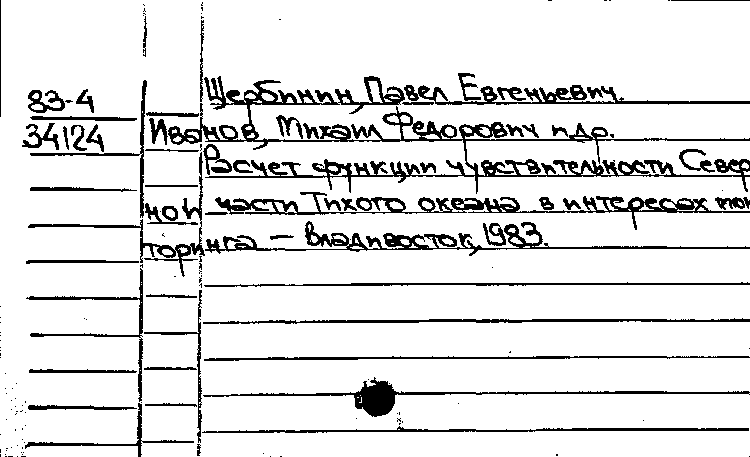 83-4
34124
Щербинин, Павел Евгеньевич.
Иванов, Михаил Федорович и др.
Расчет функции чувствительности Север
ной части Тихого океана в интересах мони
торинга — Владивосток, 1983.